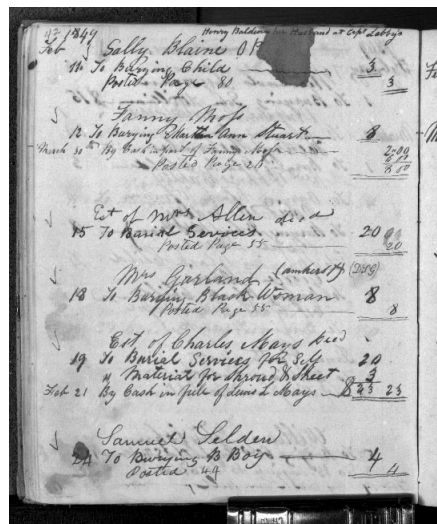 1849 Henry Balding her Husband at Capt Lebbys
Feb Sally Blaine
11 To Burying Child 3
Posted Page 80 3
Fanny Moss
12 To Burying Ann Stuart 8
March 30th By Cash in part of Fanny Moss 2.00
Posted Page 28 8 00
Est of Mrs Allen died
15 To Burial Services 20 00
Posted Page 55 20
Mrs Garland (amherst)
18 To Burying Black Woman 8
Posted Page 55 8
Est of Charles Mays Died
19 To Burial Services for Self 20
" Material for Shroud & Sheet 3
Feb 21 By Cash in full of Mays $23 23
Samuel Selden
24 To Burying B Boy 4
Posted 44 4